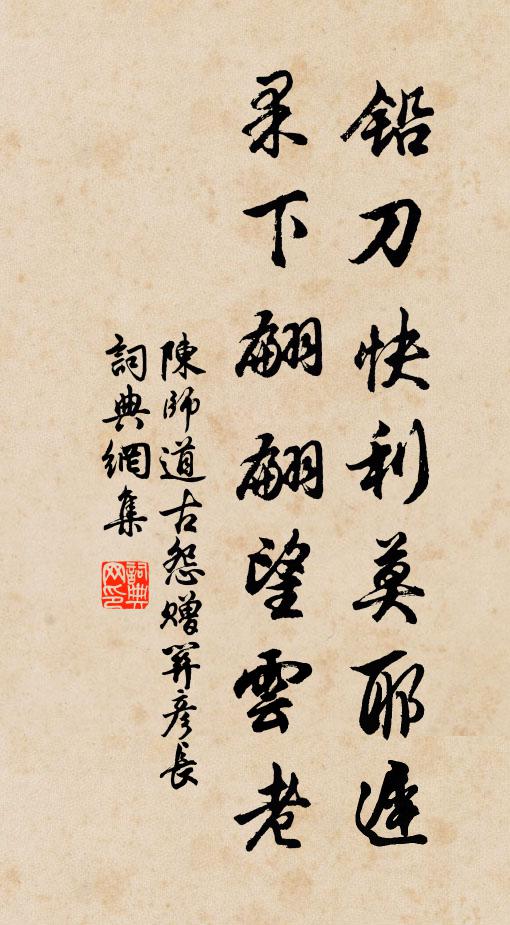 鉛刀快利莫耶遲
果下翩翩望雲老
陳師道古怨贈彥長
詞典網集
詞典网印